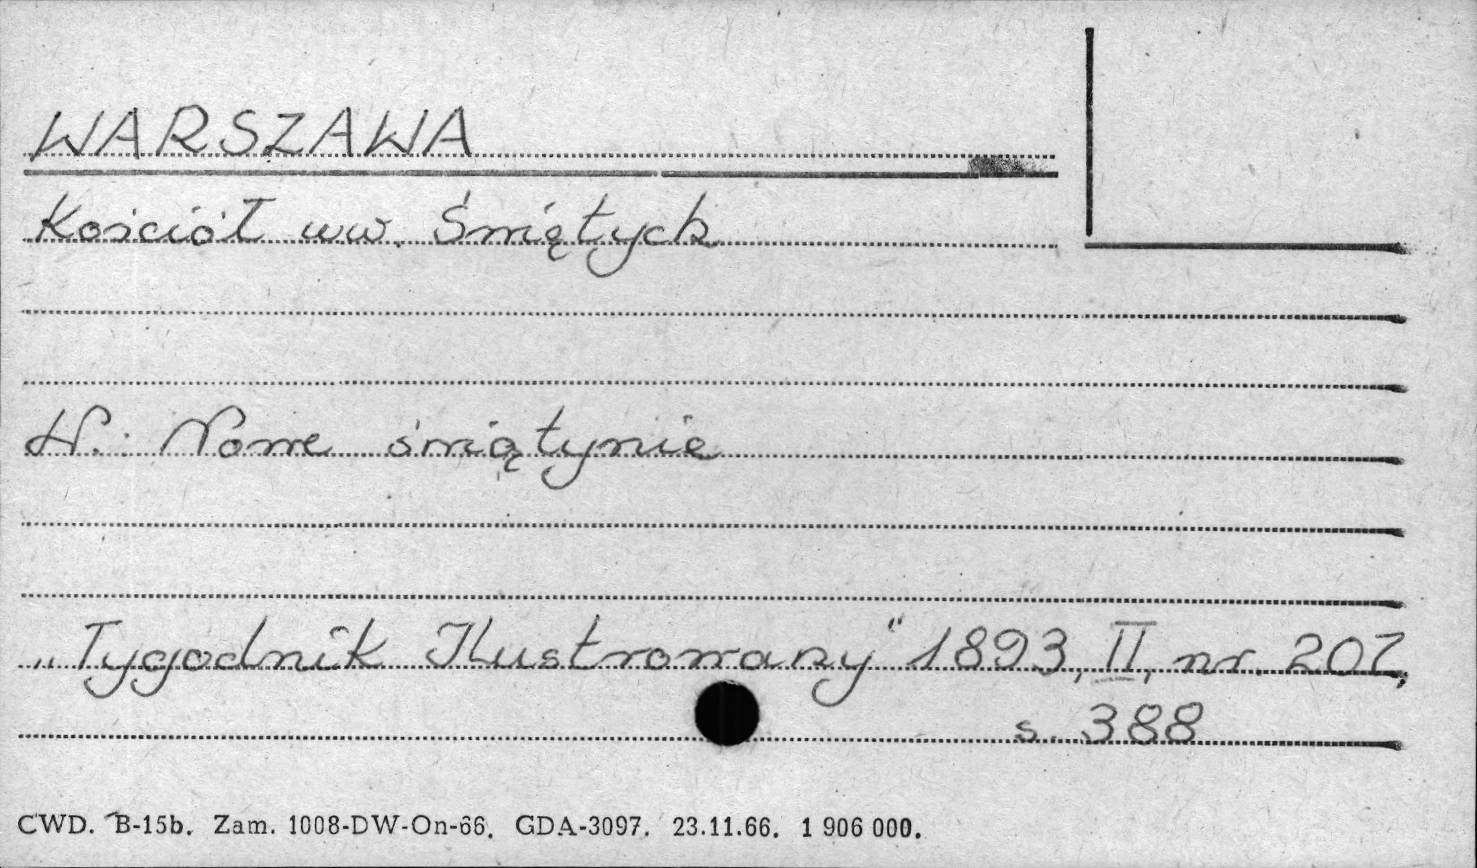 WARSZAWA
Kościół ww. Świętych
W.: Nowe świątynie
„Tygodnik Ilustrowany" 1893, II, nr. 207,
s. 388
CWD. B-15b. Zam. 1008-DW-On-66. GDA-3097. 23.11.66. 1 906 000.